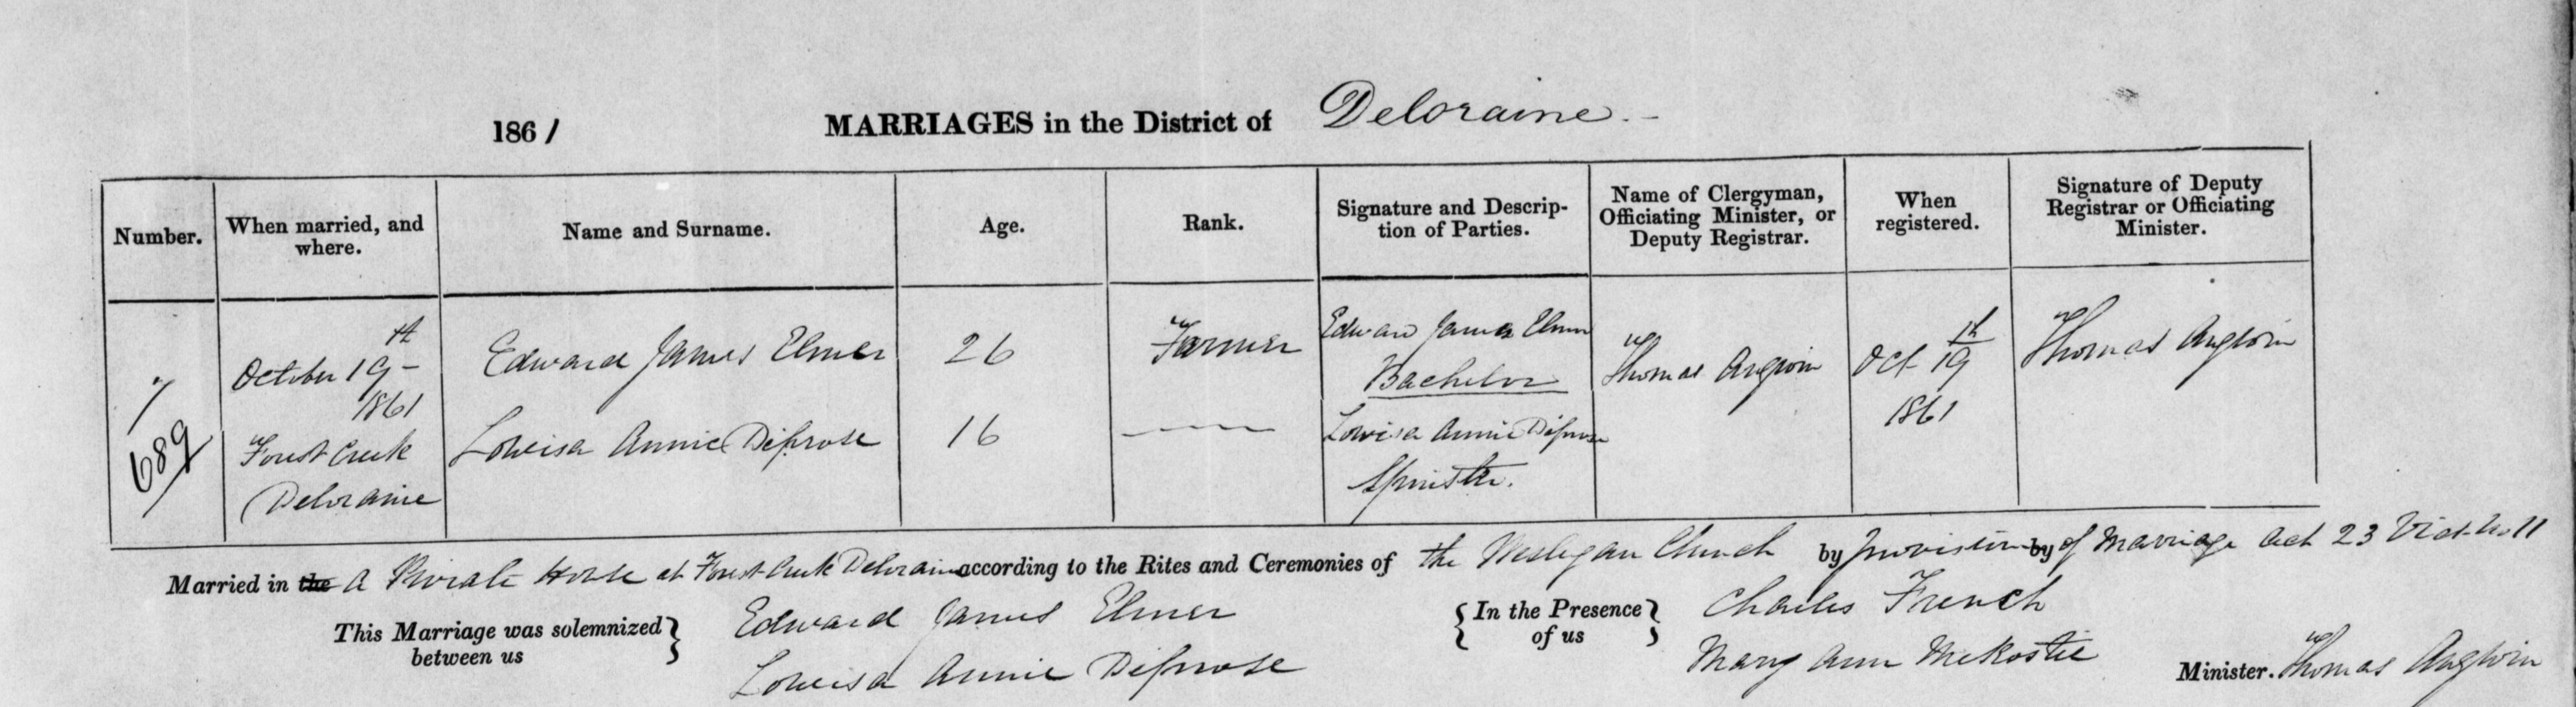 1861 MARRIAGES in the District of Deloraine.
Number. When married, and where. Name and Surname. Age. Rank. Signature and Description of Parties. Name of Clergyman, Officiating Minister, or Deputy Registrar. When registered. Signature of Deputy Registrar or Officiating Minister.
7 October 19th 1861 Edward James Elmer 26 Farmer Edward James Elmer Bachelor Thomas Angwin Oct 19th 1861 Thomas Angwin
689 Forest Creek Deloraine Lowisa Annie Diprose 16 Lowisa Annie Diprose Spinster.
Married in the A Private House at Forest Creek Deloraine according to the Rites and Ceremonies of the Wesleyan Church by provision by of Marriage Act 23 Vict No 11
This Marriage was solemnized between us Edward James Elmer In the Presence of us Charles French
Lowisa Annie Diprose Mary Ann McKostie Minister. Thomas Angwin